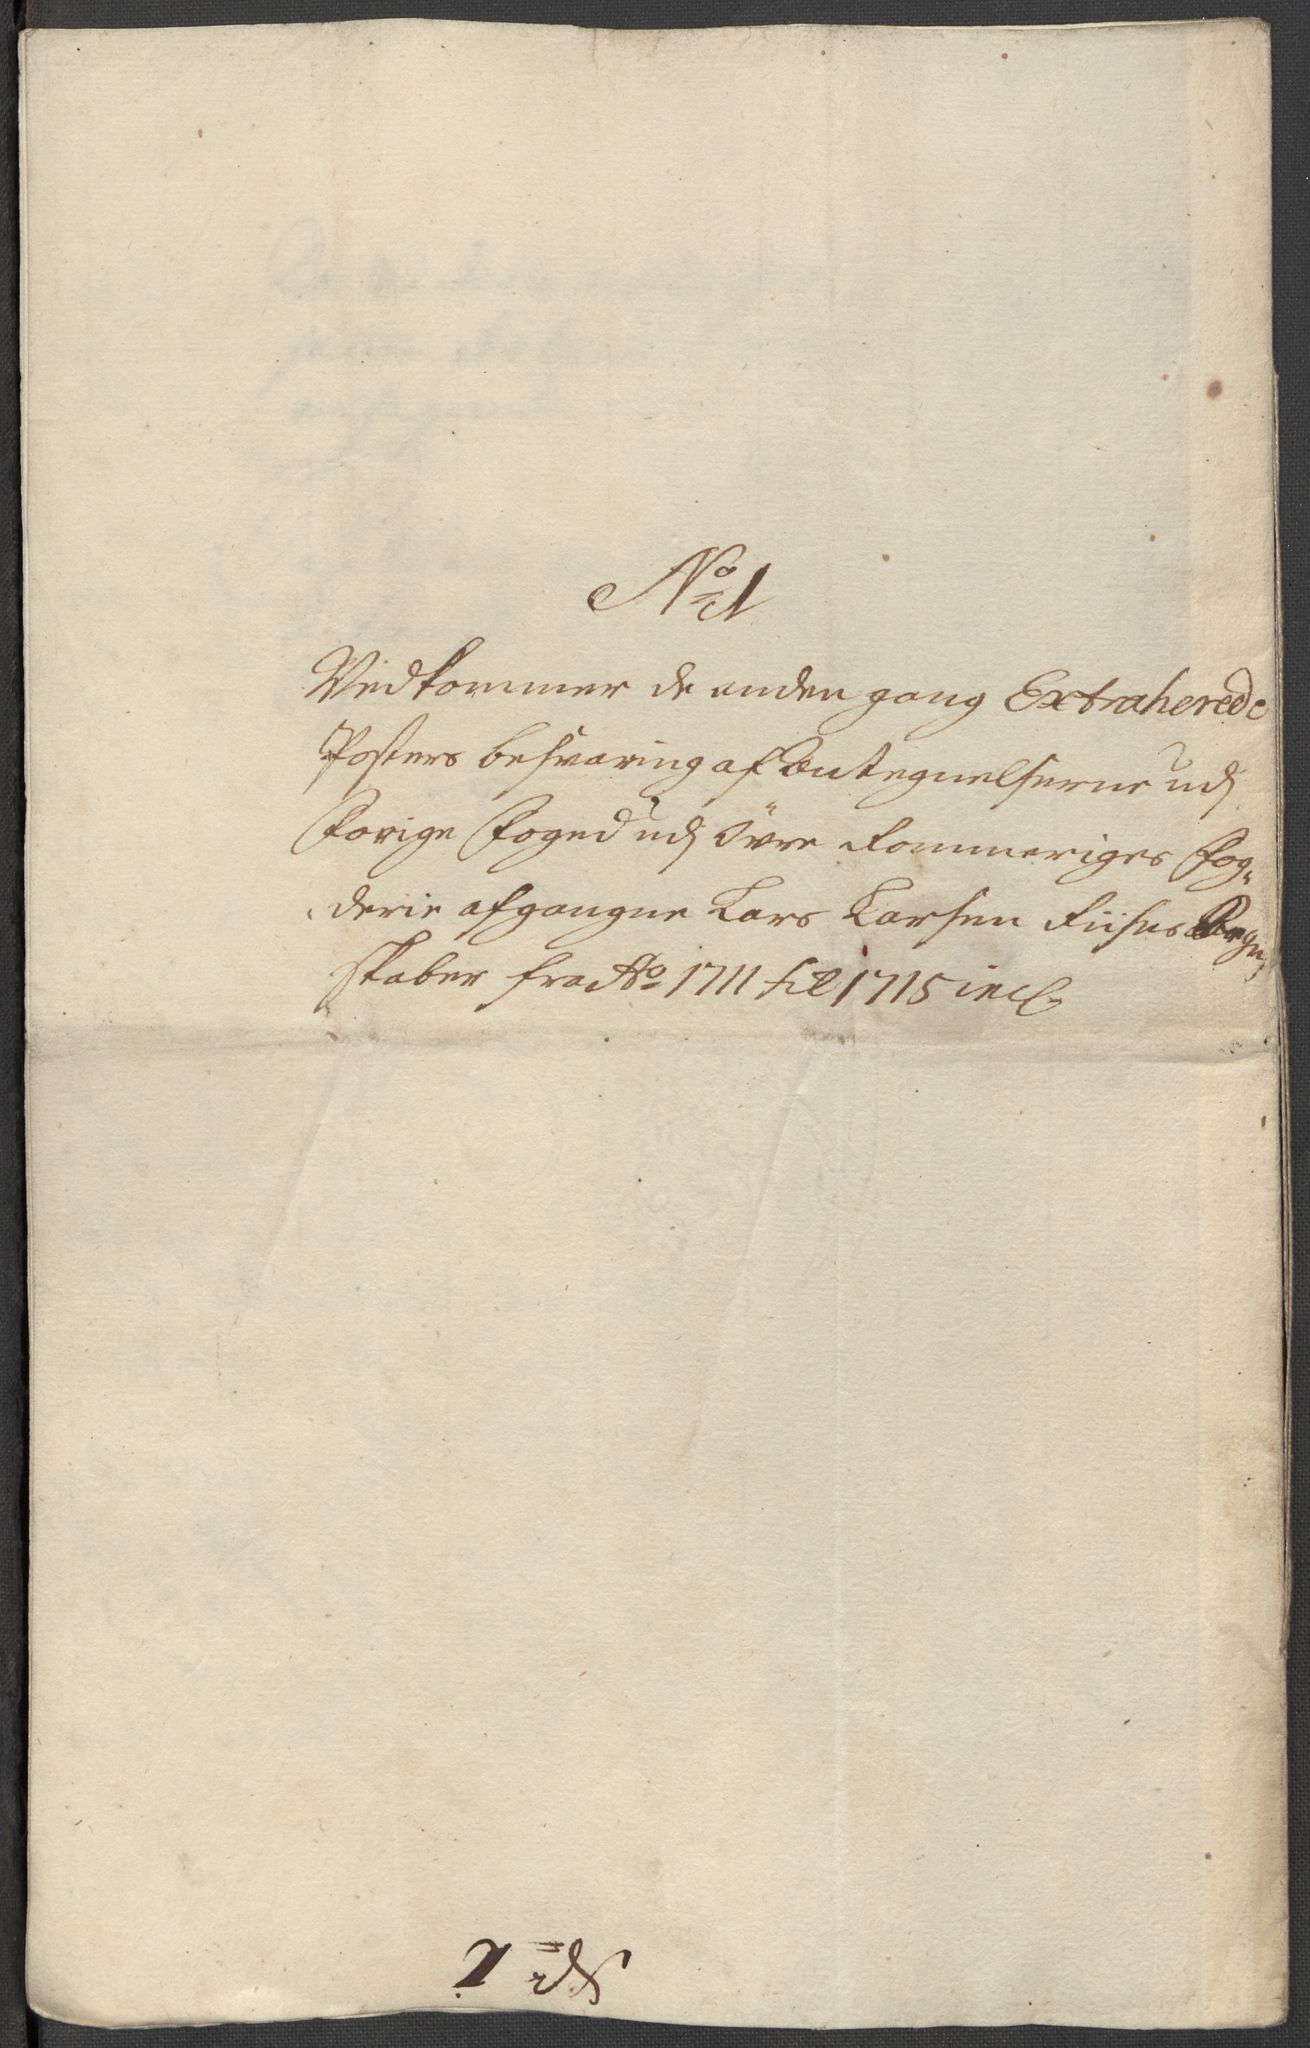 No 1
Vedkommer de anden gang Extraherede
Posters besvaring af Antegnelserne udj
forige Foged udj Övre Rommeriges Fog-
derie afgangne Lars Larsen Riises Regn-
skaber fra Ao 1711 til 1715 incl.